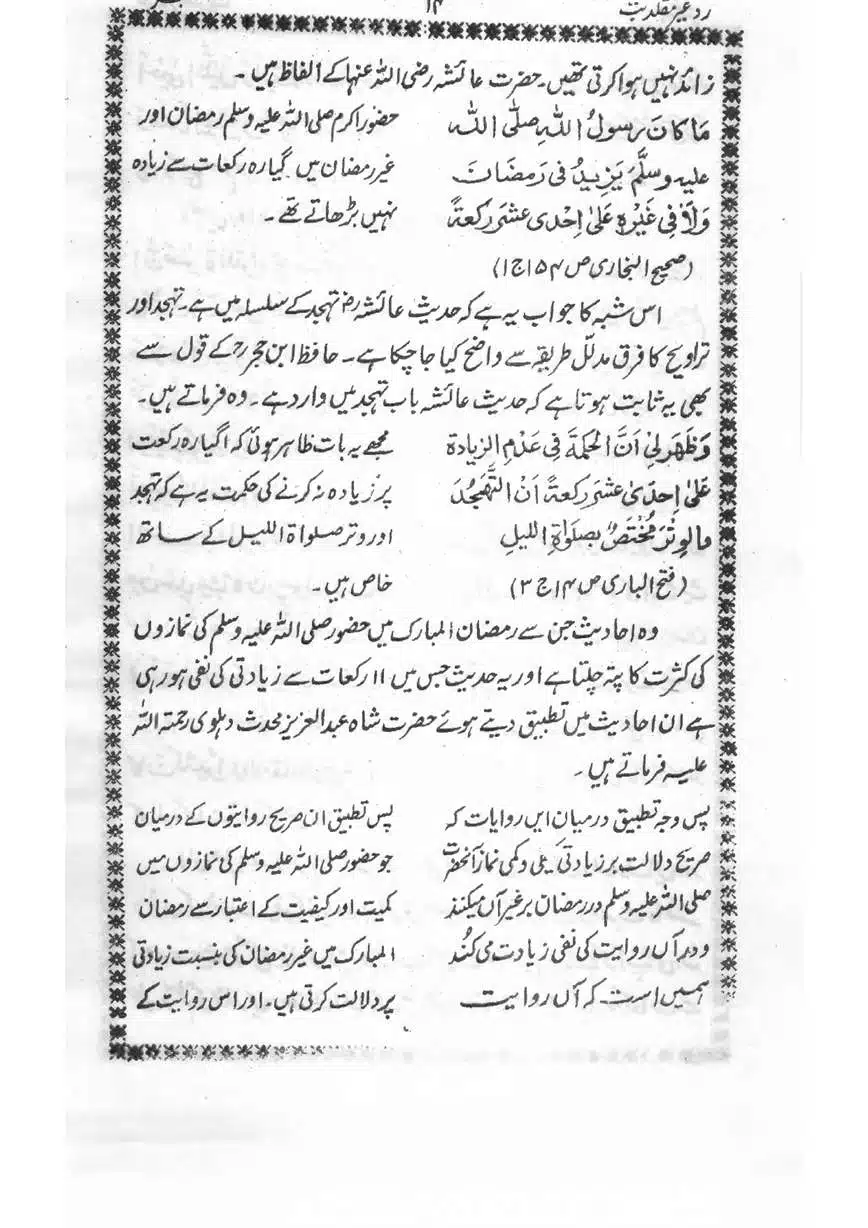 رد غیر مقلدیت
۱۴
زائد نہیں ہوا کرتی تھیں۔ حضرت عائشہ رضی اللہ عنہا کے الفاظ ہیں۔
مَا کَانَ رسولُ اللہِ صلَّی اللہ
علیہ وسلَّم یَزِیدُ فی رَمضَانَ
وَلَا فِی غَیْرِہٖ عَلیٰ اِحْدیٰ عشرَ رکعۃً
(صحیح البخاری ص ۱۵۴ ج ۱)
حضور اکرم صلی اللہ علیہ وسلم رمضان اور
غیر رمضان میں گیارہ رکعات سے زیادہ
نہیں بڑھاتے تھے۔
اس شبہ کا جواب یہ ہے کہ حدیث عائشہ رض تہجد کے سلسلہ میں ہے۔ تہجد اور
تراویح کا فرق مدلّل طریقہ سے واضح کیا جا چکا ہے۔ حافظ ابن حجر رح کے قول سے
بھی یہ ثابت ہوتا ہے کہ حدیث عائشہ باب تہجد میں وارد ہے۔ وہ فرماتے ہیں۔
وَظَھَرَلِیْ اَنَّ الحکمۃَ فِی عَدْمِ الزیادۃ
عَلیٰ اِحدیٰ عشرَ رکعۃً اَنْ التَّھَجُدَ
والوِتْرَ مُخْتَصٌ بِصلَوٰۃِ اللیلِ
(فتح الباری ص ۱۴ ج ۳)
مجھے یہ بات ظاہر ہوئی کہ اگیارہ رکعت
پر زیادہ نہ کرنے کی حکمت یہ ہے کہ تہجد
اور وتر صلواۃ اللیل کے ساتھ
خاص ہیں۔
وہ احادیث جن سے رمضان المبارک میں حضور صلی اللہ علیہ وسلم کی نمازوں
کی کثرت کا پتہ چلتا ہے اور یہ حدیث جس میں ۱۱ رکعات سے زیادتی کی نفی ہو رہی
ہے ان احادیث میں تطبیق دیتے ہوئے حضرت شاہ عبدالعزیز محدث دہلوی رحمتہ اللہ
علیہ فرماتے ہیں۔
پس وجہ تطبیق درمیان ایں روایات کہ
صریح دلالت بر زیادتی کیفی و کمی نماز آنحضرت
صلی اللہ علیہ وسلم در رمضان بر غیر آں میکنند
و در آں روایت کی نفی زیادت می کُند
ہمیں است کہ آں روایت
پس تطبیق ان صریح روایتوں کے درمیان
جو حضور صلی اللہ علیہ وسلم کی نمازوں میں
کمیت اور کیفیت کے اعتبار سے رمضان
المبارک میں غیر رمضان کی بنسبت زیادتی
پر دلالت کرتی ہیں۔ اور اس روایت کے